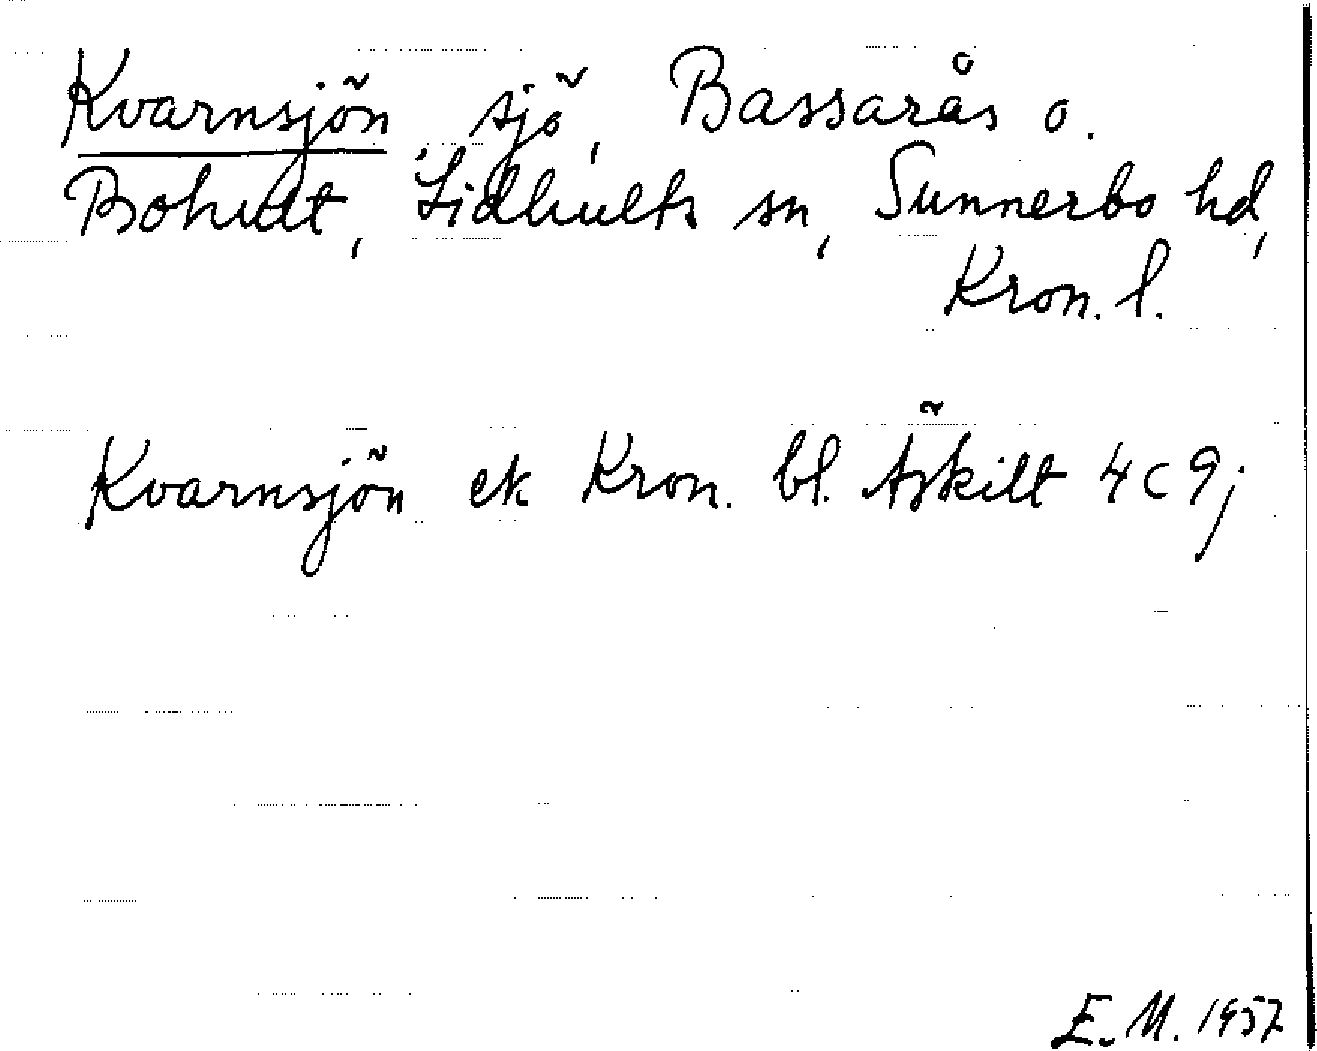 Kvarnsjön, sjö, Bassarås o.
Bohult, Lidhults sn, Sunnerbo hd,
Kron. l.
Kvarnsjön ek Kron. bl. Äskilt 4 c 9j
E.M. 1957